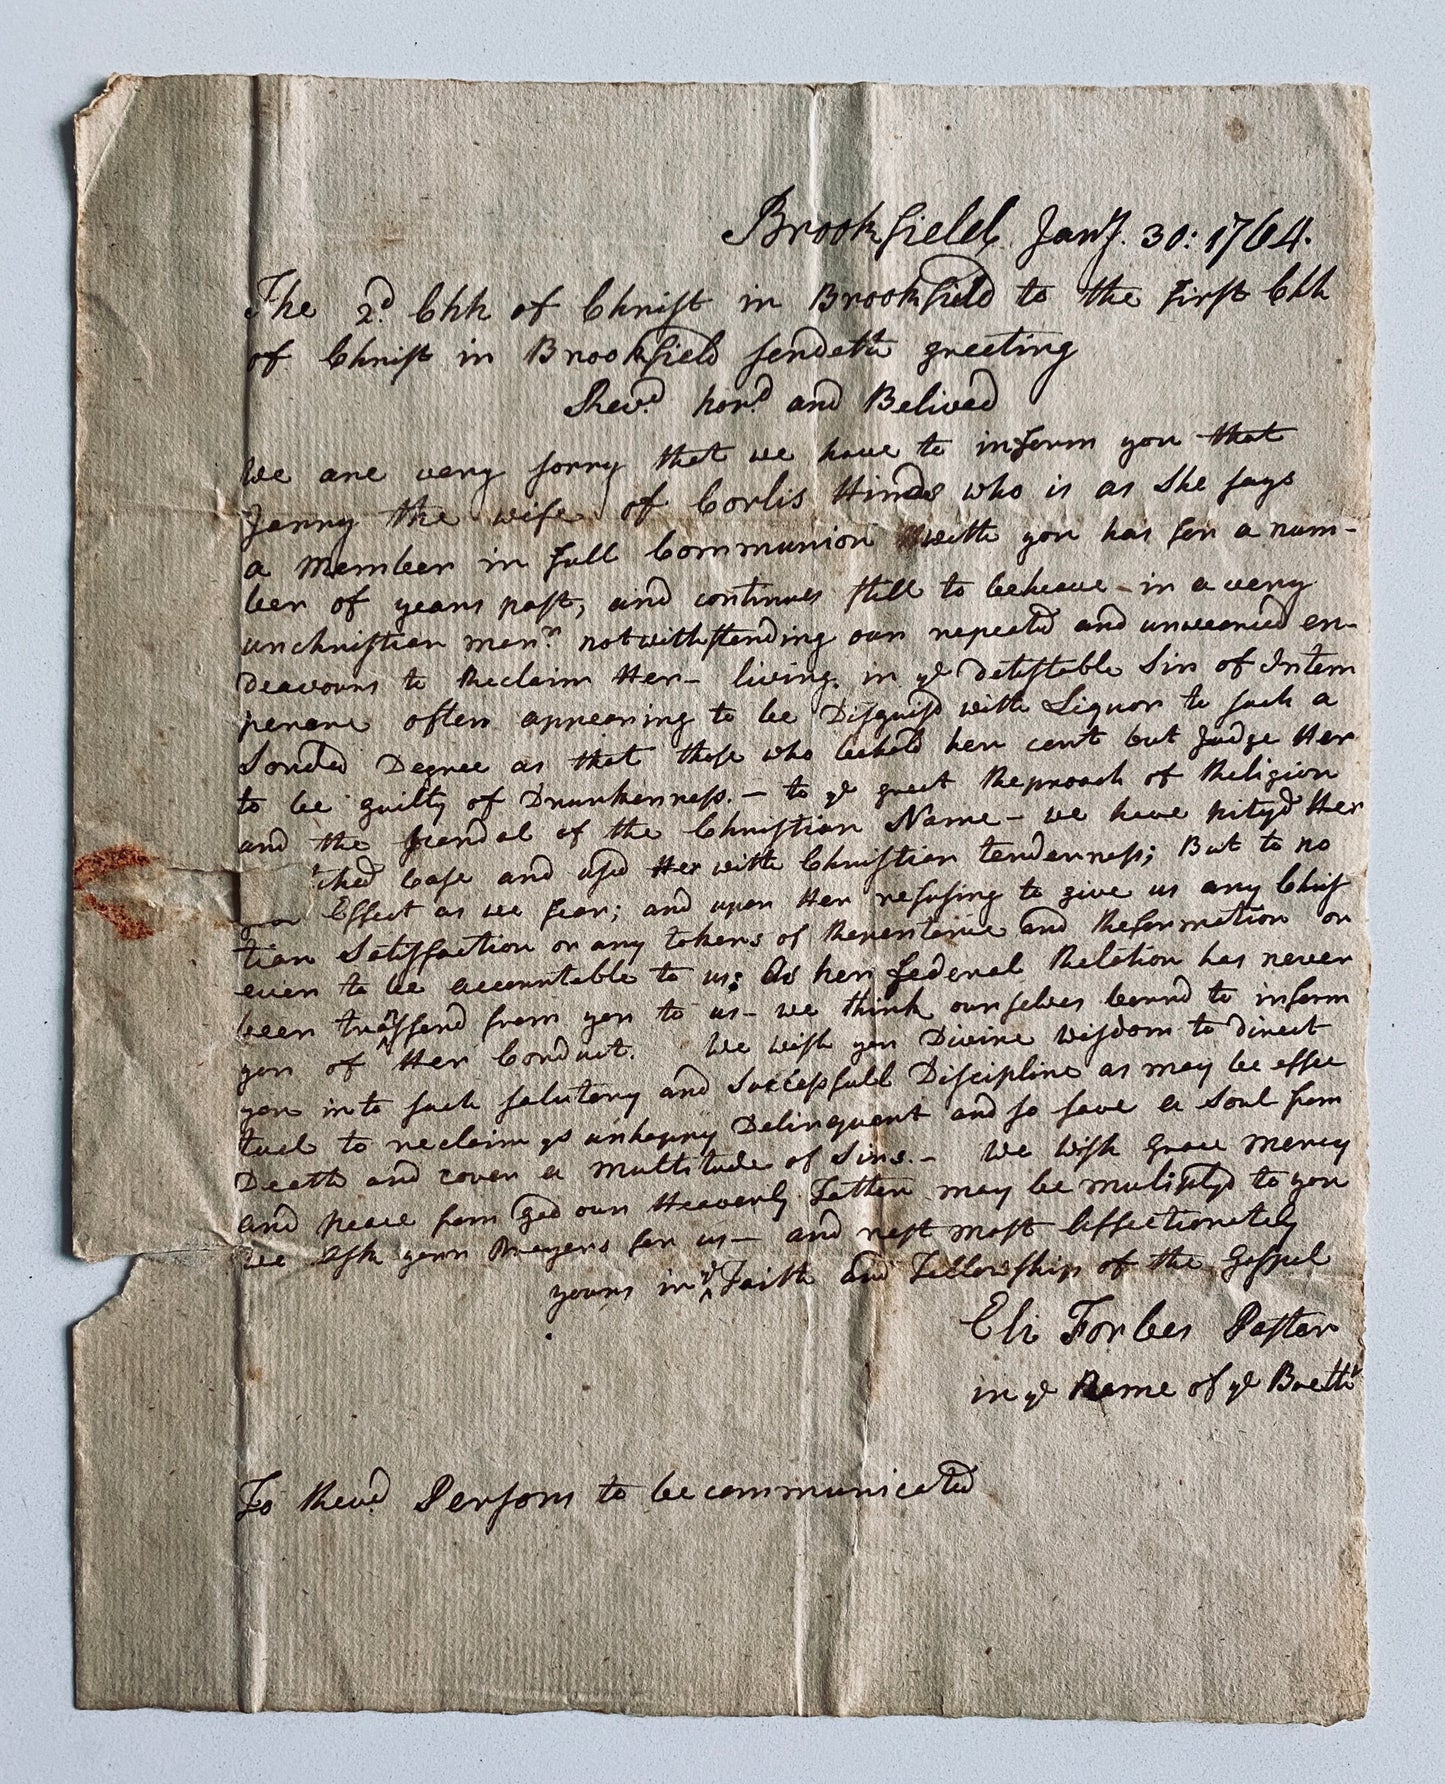 Brookfield Jany. 30: 1764.
The 2d. Chh of Christ in Brookfield to the first Chh
of Christ in Brookfield sendeth greeting
Revd. hord. and Belived
We are very sorry that we have to inform you that
Jenny the wife of Corlis Hinds who is as She says
a Member in full Communion with you has for a num-
ber of years past, and continues still to behave in a very
unchristian mann. notwithstanding our repeated and unwearied en-
deavours to Reclaim Her - living in ye detestable Sin of Intem
perane often appearing to be Disguisd with Liquor to such a
Sorded Degree as that those who beheld her cant but Judge Her
to be guilty of Drunkenness. - to ye great Reproach of Religion
and the scandal of the Christian Name - we have pityd Her
Case and usd Her with Christian tenderness; But to no
Effect as we fear; and upon Her refusing to give us any Chris
tian Satisfaction or any tokens of Repentance and Reformation or
even to be accountable to us: As her federal Relation has never
been transferd from you to us - we think ourselves bound to inform
you of Her Conduct. We wish you Divine wisdom to direct
you into such salutary and Successfull Discipline as may be effec
tual to reclaim ys unhappy Delinquent and so save a Soul from
Death and cover a Multitude of Sins. - We wish Grace mercy
and peace from god our Heavenly Father may be multiplyd to you
We Ask your Prayers for us - and rest most Affectionately
yours in ye Faith and Fellowship of the Gospel
Eli Forbes Paster
in ye Name of ye Breth
To Revd Persons to be communicated